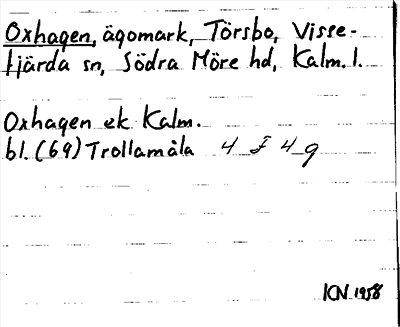 Oxhagen, ägomark, Törsbo, Visse-
fjärda sn, Södra Möre hd, Kalm. l.
Oxhagen ek Kalm.
bl. (69) Trollamåla 4 F 4 g
KN 1958